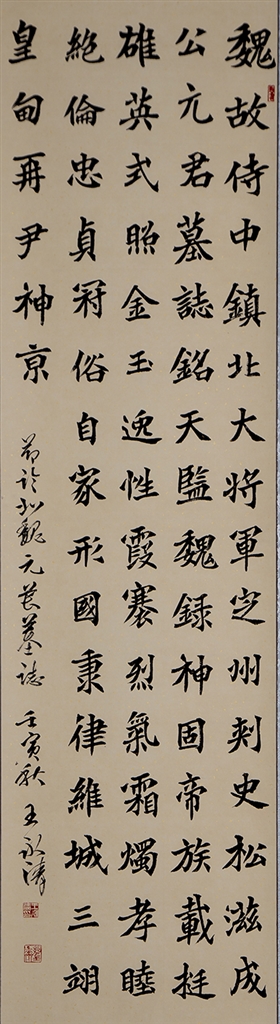 魏故侍中鎮北大將軍定州刺史松滋成
公元君墓誌銘天監魏録神固帝族載挺
雄英式照金玉逸性霞褰烈氣霜燭孝睦
絶倫忠貞冠俗自家形國秉律維城三翊
皇甸再尹神京
節臨北魏元萇墓誌 壬寅秋 王永濤